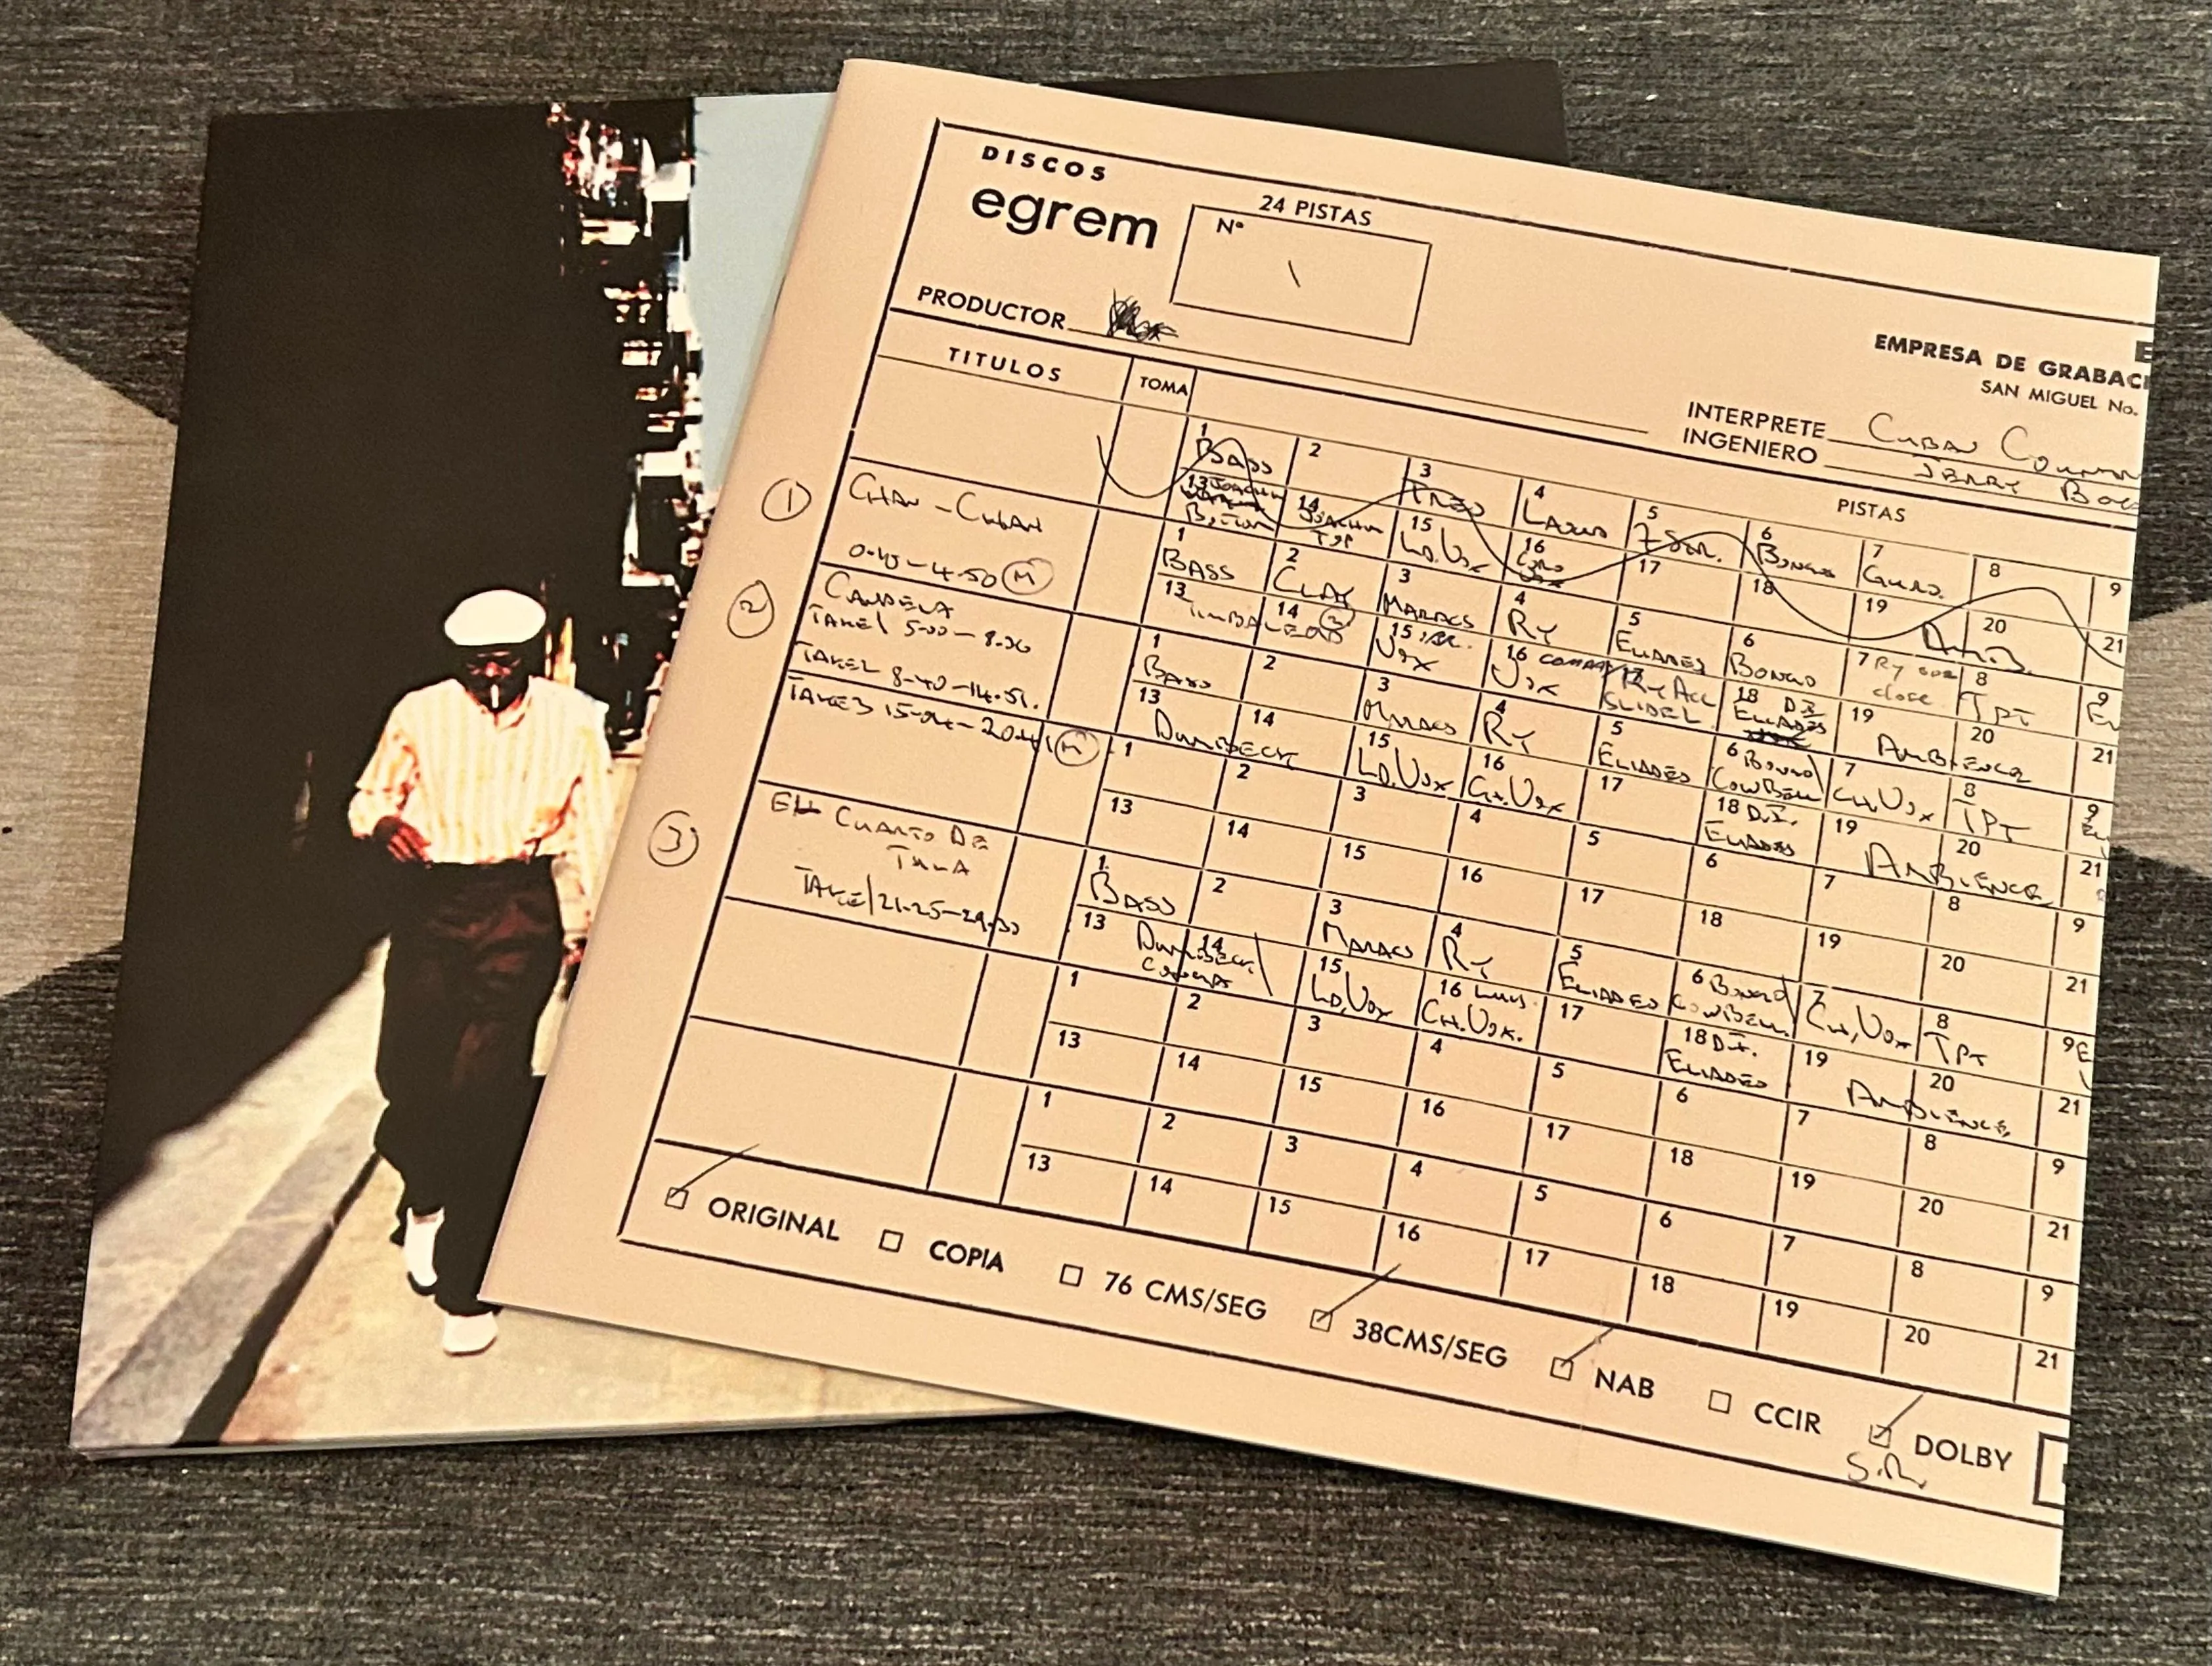 DISCOS
egrem
24 PISTAS
Nº
\
PRODUCTOR
EMPRESA DE GRABACI
SAN MIGUEL No.
INTERPRETE CUBAN
INGENIERO JERRY
TITULOS TOMA PISTAS
1 2 3 4 5 6 7 8 9
BASS TRES LAOUD BONGOS GUIRO.
13 14 15 16 17 18 19 20 21
JOACHIM JOACHIM LD.VOX CORO AMB.
BOTTOM TOP VOX
① CHAN-CHAN
0.45-4.50 Ⓜ
1 2 3 4 5 6 7 8 9
BASS CLAY MARACS RY ELIADES BONGO RY close TPT
13 14 15 16 17 18 19 20 21
TIMBALE VOX VOX COMPAY RY ACC D.I. AMBIENCE
SLIDE ELIADES
② CANDELA
TAKE 1 5.00-8.36
TAKE 2 8-40-14.51.
1 2 3 4 5 6 7 8 9
BASS MARACS RY ELIADES BONGO/ CH.VOX TPT
COWBELL
13 14 15 16 17 18 19 20 21
DUMBECK LD.VOX CH.VOX D.I. AMBIENCE
ELIADES
TAKE 3 15-04-20.41 Ⓜ
1 2 3 4 5 6 7 8 9
13 14 15 16 17 18 19 20 21
③ EL CUARTO DE
TULA
TAKE 1 21-25-29.30
1 2 3 4 5 6 7 8 9
BASS MARACS RY ELIADES BONGO/ CH.VOX TPT
COWBELL.
13 14 15 16 17 18 19 20 21
DUMBECK/ LD.VOX LUIS. D.I. AMBIENCE
CONGA CH.VOX. ELIADES
1 2 3 4 5 6 7 8 9
13 14 15 16 17 18 19 20 21
1 2 3 4 5 6 7 8 9
13 14 15 16 17 18 19 20 21
ORIGINAL COPIA 76 CMS/SEG 38CMS/SEG NAB CCIR DOLBY
S.R.